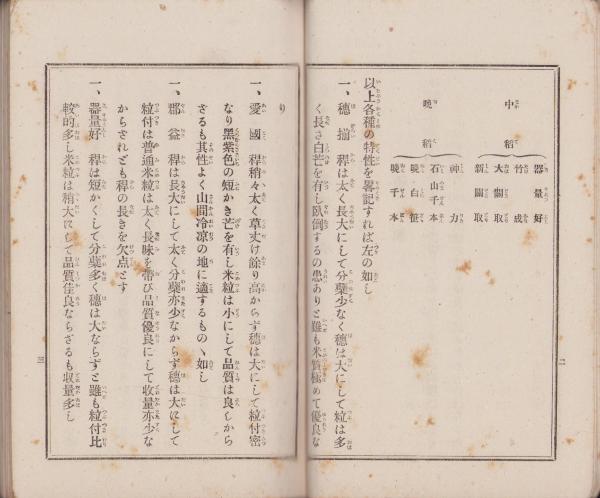 中稲
器量好
竹成
大關取
新關取
晩稲
神力
石山千本
晩白笹
晩千本
以上各種の特性を畧記すれば左の如し
一、穗揃 稈は太く長大にして分蘖少なく穗は大にして粒は多
く長さ白芒を有し臥倒するの患ありと雖も米質極めて優良な
二
り
一、愛國 稈稍々太く草丈け餘り高からず穗は大にして粒付密
なり黑紫色の短かき芒を有し米粒は小にして品質は良しから
ざるも其性よく山間冷凉の地に適するものゝ如し
一、郡益 稈は長大にして太く分蘖亦少なからず穗は大にして
粒付は普通米粒は太く長味を帶び品質優良にして收量亦少な
からされども稈の長きを欠点とす
一、器量好 稈は短かくして分蘖多く穗は大ならずと雖も粒付比
較的多し米粒は稍大にして品質佳良ならざるも收量多し
三